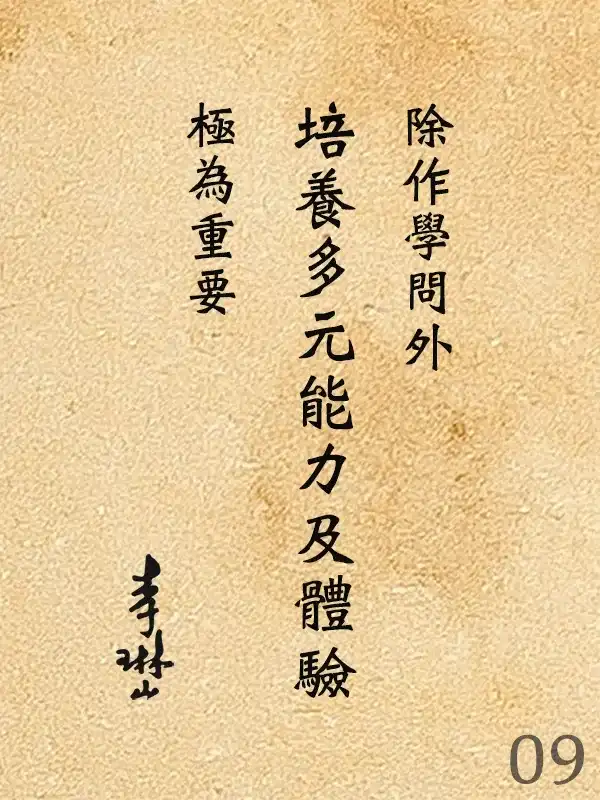 除作學問外
培養多元能力及體驗
極為重要
李琳山
09